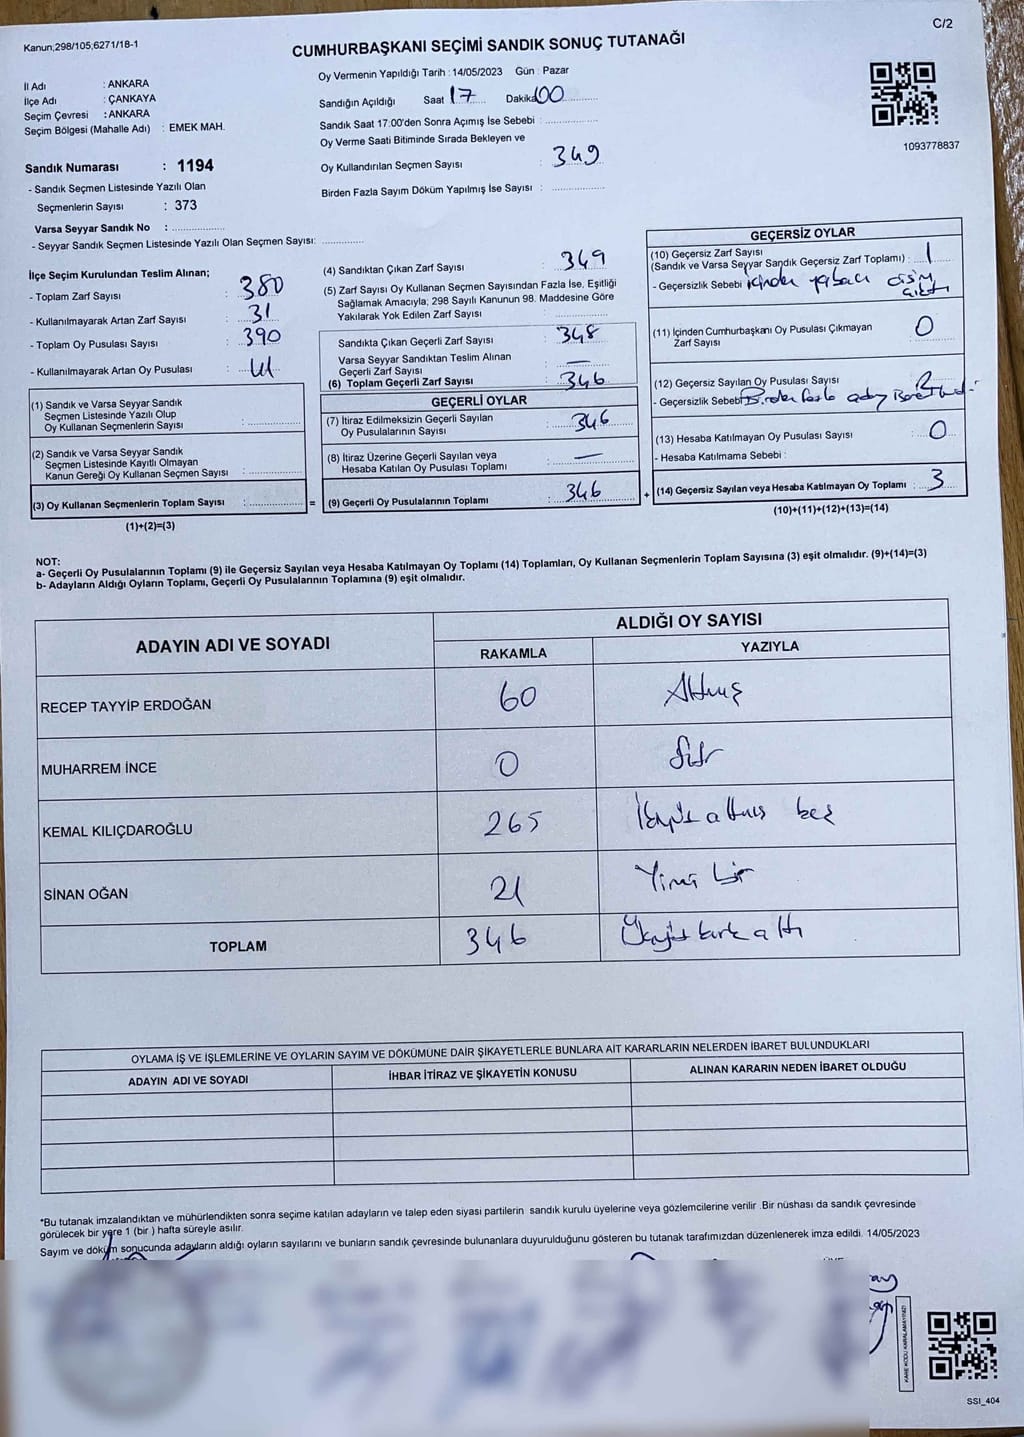 Kanun;298/105;6271/18-1
C/2
CUMHURBAŞKANI SEÇİMİ SANDIK SONUÇ TUTANAĞI
İl Adı : ANKARA
İlçe Adı : ÇANKAYA
Seçim Çevresi : ANKARA
Seçim Bölgesi (Mahalle Adı) : EMEK MAH.
Oy Vermenin Yapıldığı Tarih : 14/05/2023 Gün : Pazar
Sandığın Açıldığı Saat 17 Dakika 00
Sandık Saat 17:00'den Sonra Açımış İse Sebebi :
Oy Verme Saati Bitiminde Sırada Bekleyen ve
Oy Kullandırılan Seçmen Sayısı : 349
Birden Fazla Sayım Döküm Yapılmış İse Sayısı :
1093778837
Sandık Numarası : 1194
- Sandık Seçmen Listesinde Yazılı Olan
Seçmenlerin Sayısı : 373
Varsa Seyyar Sandık No :
- Seyyar Sandık Seçmen Listesinde Yazılı Olan Seçmen Sayısı:
İlçe Seçim Kurulundan Teslim Alınan;
- Toplam Zarf Sayısı : 380
- Kullanılmayarak Artan Zarf Sayısı : 31
- Toplam Oy Pusulası Sayısı : 390
- Kullanılmayarak Artan Oy Pusulası : 41
(1) Sandık ve Varsa Seyyar Sandık
Seçmen Listesinde Yazılı Olup
Oy Kullanan Seçmenlerin Sayısı :
(2) Sandık ve Varsa Seyyar Sandık
Seçmen Listesinde Kayıtlı Olmayan
Kanun Gereği Oy Kullanan Seçmen Sayısı :
(3) Oy Kullanan Seçmenlerin Toplam Sayısı : =
(1)+(2)=(3)
(4) Sandıktan Çıkan Zarf Sayısı : 349
(5) Zarf Sayısı Oy Kullanan Seçmen Sayısından Fazla İse, Eşitliği
Sağlamak Amacıyla; 298 Sayılı Kanunun 98. Maddesine Göre
Yakılarak Yok Edilen Zarf Sayısı :
Sandıkta Çıkan Geçerli Zarf Sayısı : 348
Varsa Seyyar Sandıktan Teslim Alınan
Geçerli Zarf Sayısı : —
(6) Toplam Geçerli Zarf Sayısı : 346
GEÇERLİ OYLAR
(7) İtiraz Edilmeksizin Geçerli Sayılan
Oy Pusulalarının Sayısı : 346
(8) İtiraz Üzerine Geçerli Sayılan veya
Hesaba Katılan Oy Pusulası Toplamı : —
(9) Geçerli Oy Pusulalarının Toplamı : 346 +
GEÇERSİZ OYLAR
(10) Geçersiz Zarf Sayısı
(Sandık ve Varsa Seyyar Sandık Geçersiz Zarf Toplamı) : 1
- Geçersizlik Sebebi içinden yabacı cisim
çıktı
(11) İçinden Cumhurbaşkanı Oy Pusulası Çıkmayan
Zarf Sayısı : 0
(12) Geçersiz Sayılan Oy Pusulası Sayısı : 2
- Geçersizlik Sebebi Birden fazla aday
(13) Hesaba Katılmayan Oy Pusulası Sayısı : 0
- Hesaba Katılmama Sebebi :
(14) Geçersiz Sayılan veya Hesaba Katılmayan Oy Toplamı : 3
(10)+(11)+(12)+(13)=(14)
NOT:
a- Geçerli Oy Pusulalarının Toplamı (9) ile Geçersiz Sayılan veya Hesaba Katılmayan Oy Toplamı (14) Toplamları, Oy Kullanan Seçmenlerin Toplam Sayısına (3) eşit olmalıdır. (9)+(14)=(3)
b- Adayların Aldığı Oyların Toplamı, Geçerli Oy Pusulalarının Toplamına (9) eşit olmalıdır.
ADAYIN ADI VE SOYADI
ALDIĞI OY SAYISI
RAKAMLA YAZIYLA
RECEP TAYYİP ERDOĞAN 60 Altmış
MUHARREM İNCE 0 Sıfır
KEMAL KILIÇDAROĞLU 265 İkiyüz altmış beş
SİNAN OĞAN 21 Yirmi bir
TOPLAM 346 Üçyüz kırk altı
OYLAMA İŞ VE İŞLEMLERİNE VE OYLARIN SAYIM VE DÖKÜMÜNE DAİR ŞİKAYETLERLE BUNLARA AİT KARARLARIN NELERDEN İBARET BULUNDUKLARI
ADAYIN ADI VE SOYADI İHBAR İTİRAZ VE ŞİKAYETİN KONUSU ALINAN KARARIN NEDEN İBARET OLDUĞU
*Bu tutanak imzalandıktan ve mühürlendikten sonra seçime katılan adayların ve talep eden siyasi partilerin sandık kurulu üyelerine veya gözlemcilerine verilir .Bir nüshası da sandık çevresinde
görülecek bir yere 1 (bir ) hafta süreyle asılır.
Sayım ve döküm sonucunda adayların aldığı oyların sayılarını ve bunların sandık çevresinde bulunanlara duyurulduğunu gösteren bu tutanak tarafımızdan düzenlenerek imza edildi. 14/05/2023
KARE KODU KARALAMAYINIZ!
SSI_404